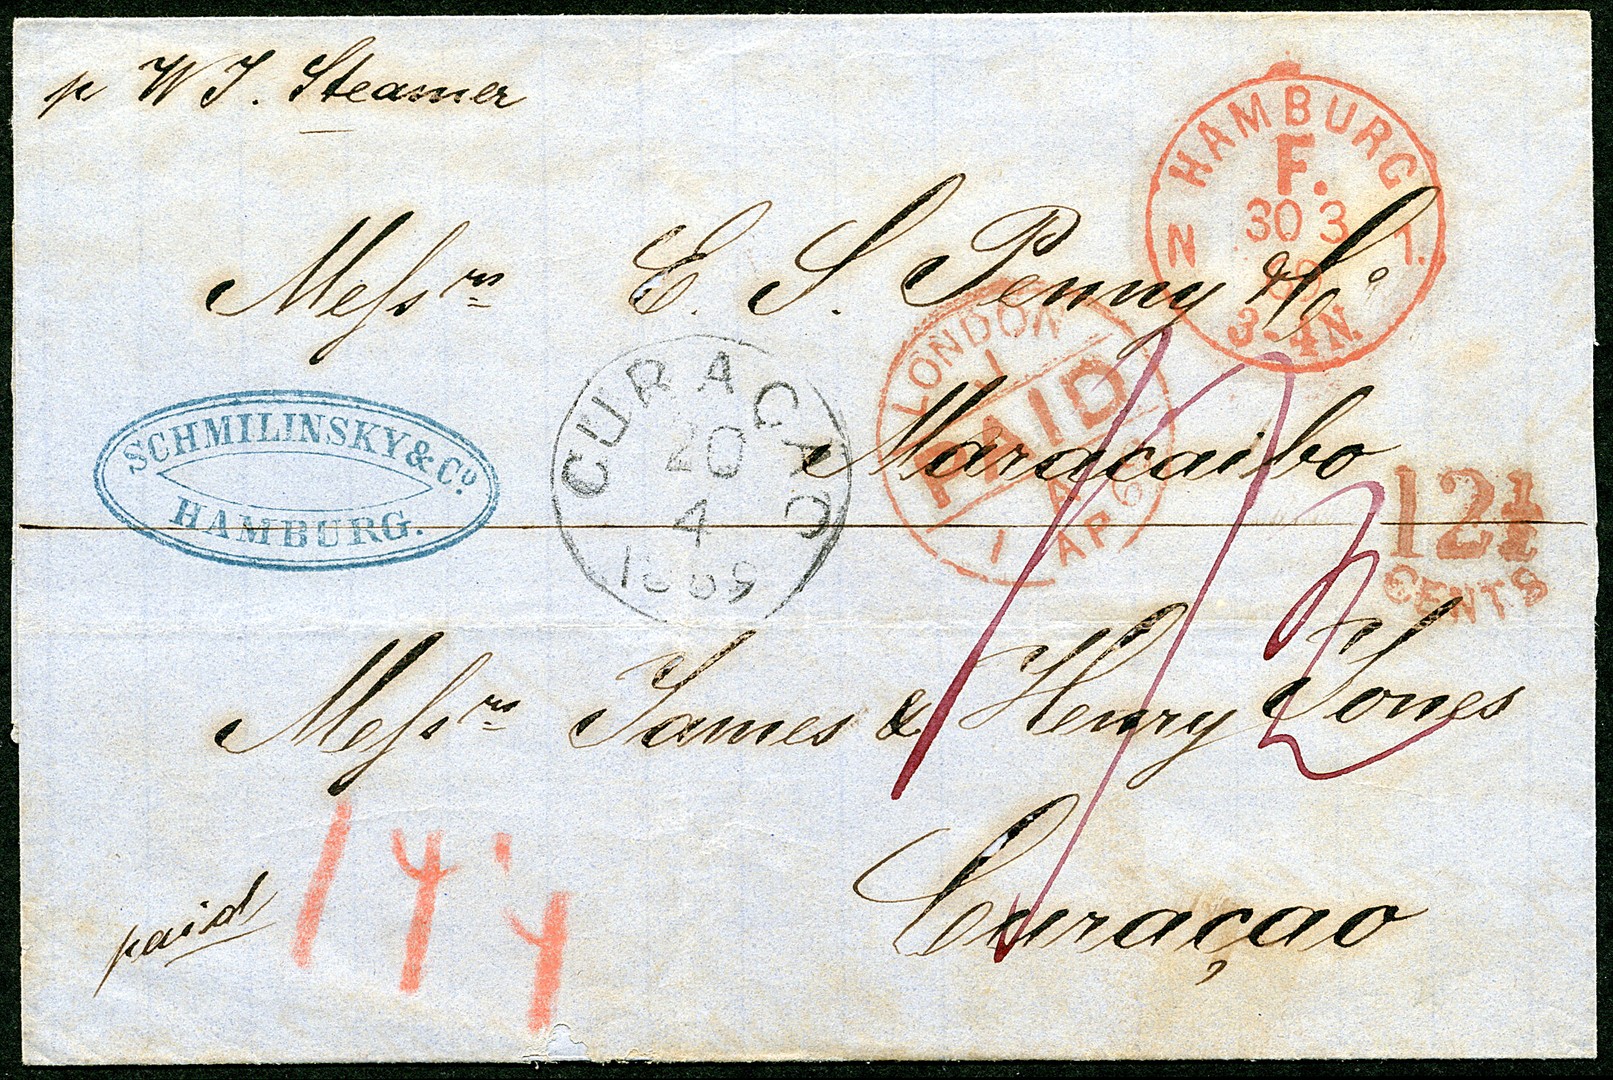 p W I. Steamer
HAMBURG
F.
30 3
N 1.
3-4N.
Messrs E. S. Penny & Co
LONDON
PAID
1 AP 69
Maracaibo
CURAÇAO
20
4
1869
SCHMILINSKY & Co.
HAMBURG.
12½
CENTS
Messrs James & Henry Jones
Curaçao
paid